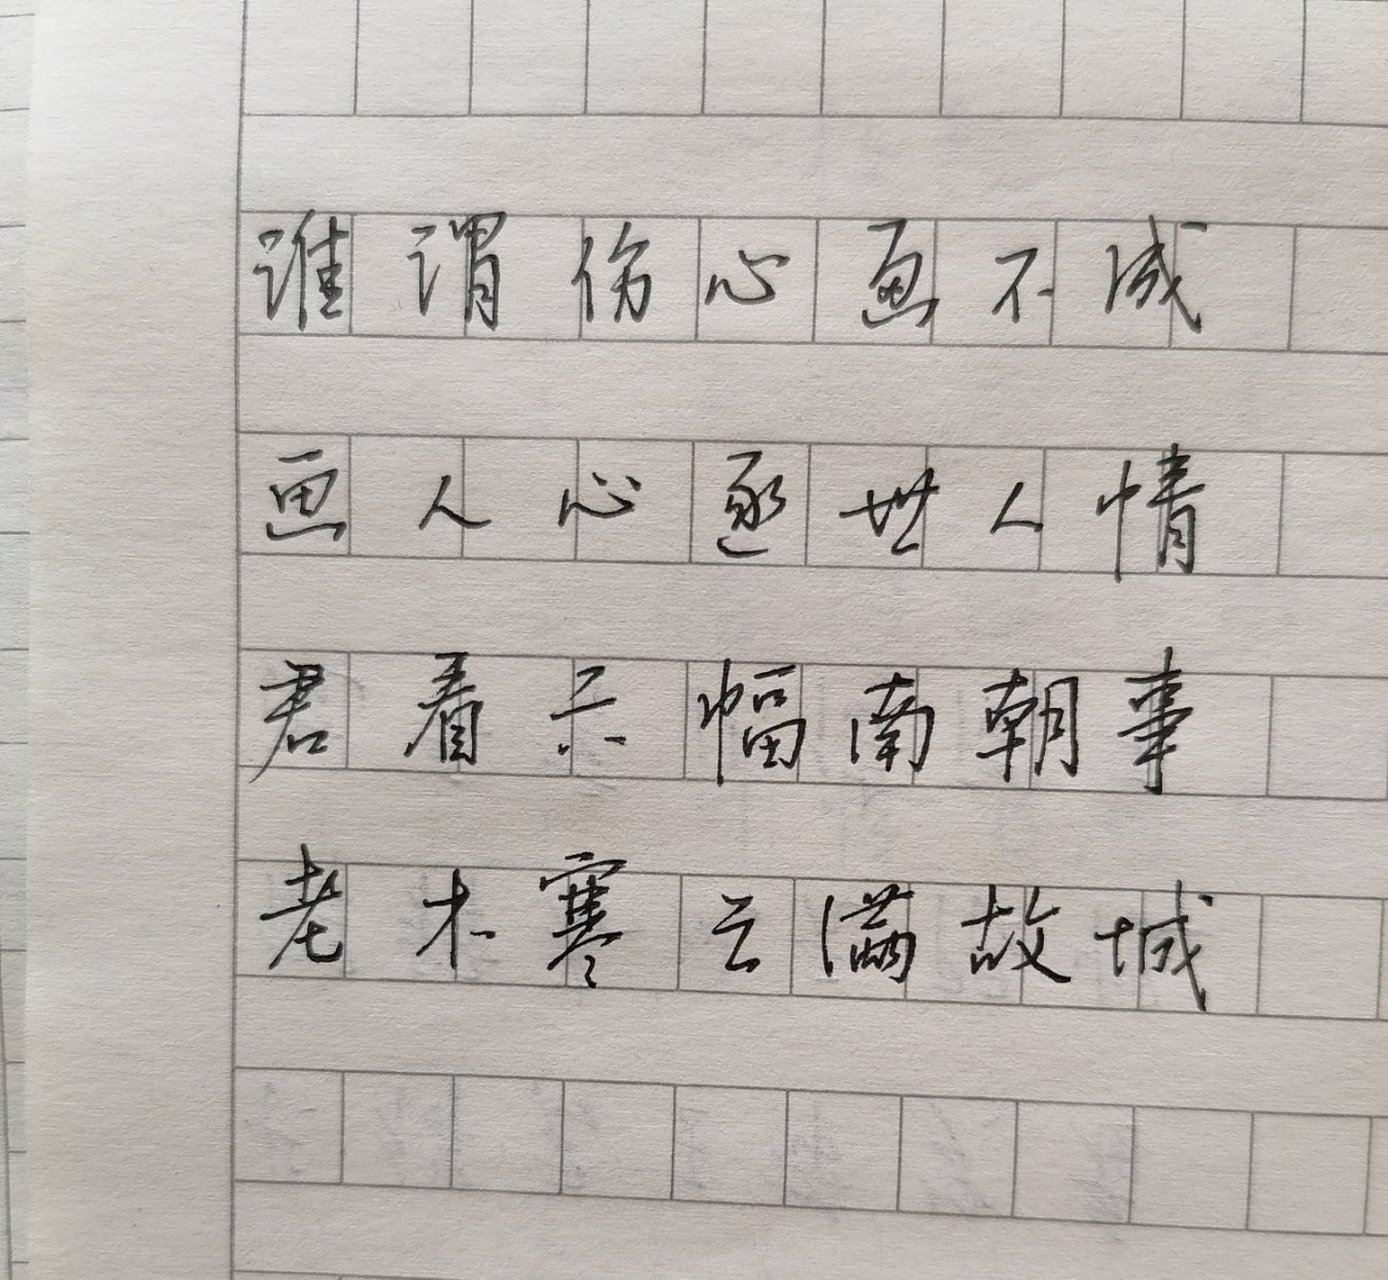 谁谓伤心画不成
画人心逐世人情
君看六幅南朝事
老木寒云满故城